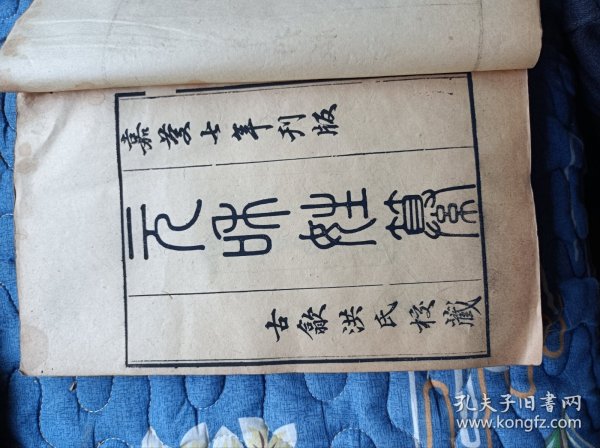 嘉慶七年刊版
元和姓纂
古歙洪氏校藏
孔夫子旧书网
www.kongfz.com